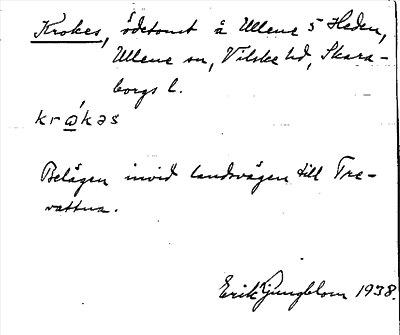 Krokes, ödetomt å Ullene 5 Heden,
Ullene sn, Vilske hd, Skara-
borgs l.
krớkəs
Belägen invid landsvägen till Tre-
vattna.
Erik Ljungblom 1938.